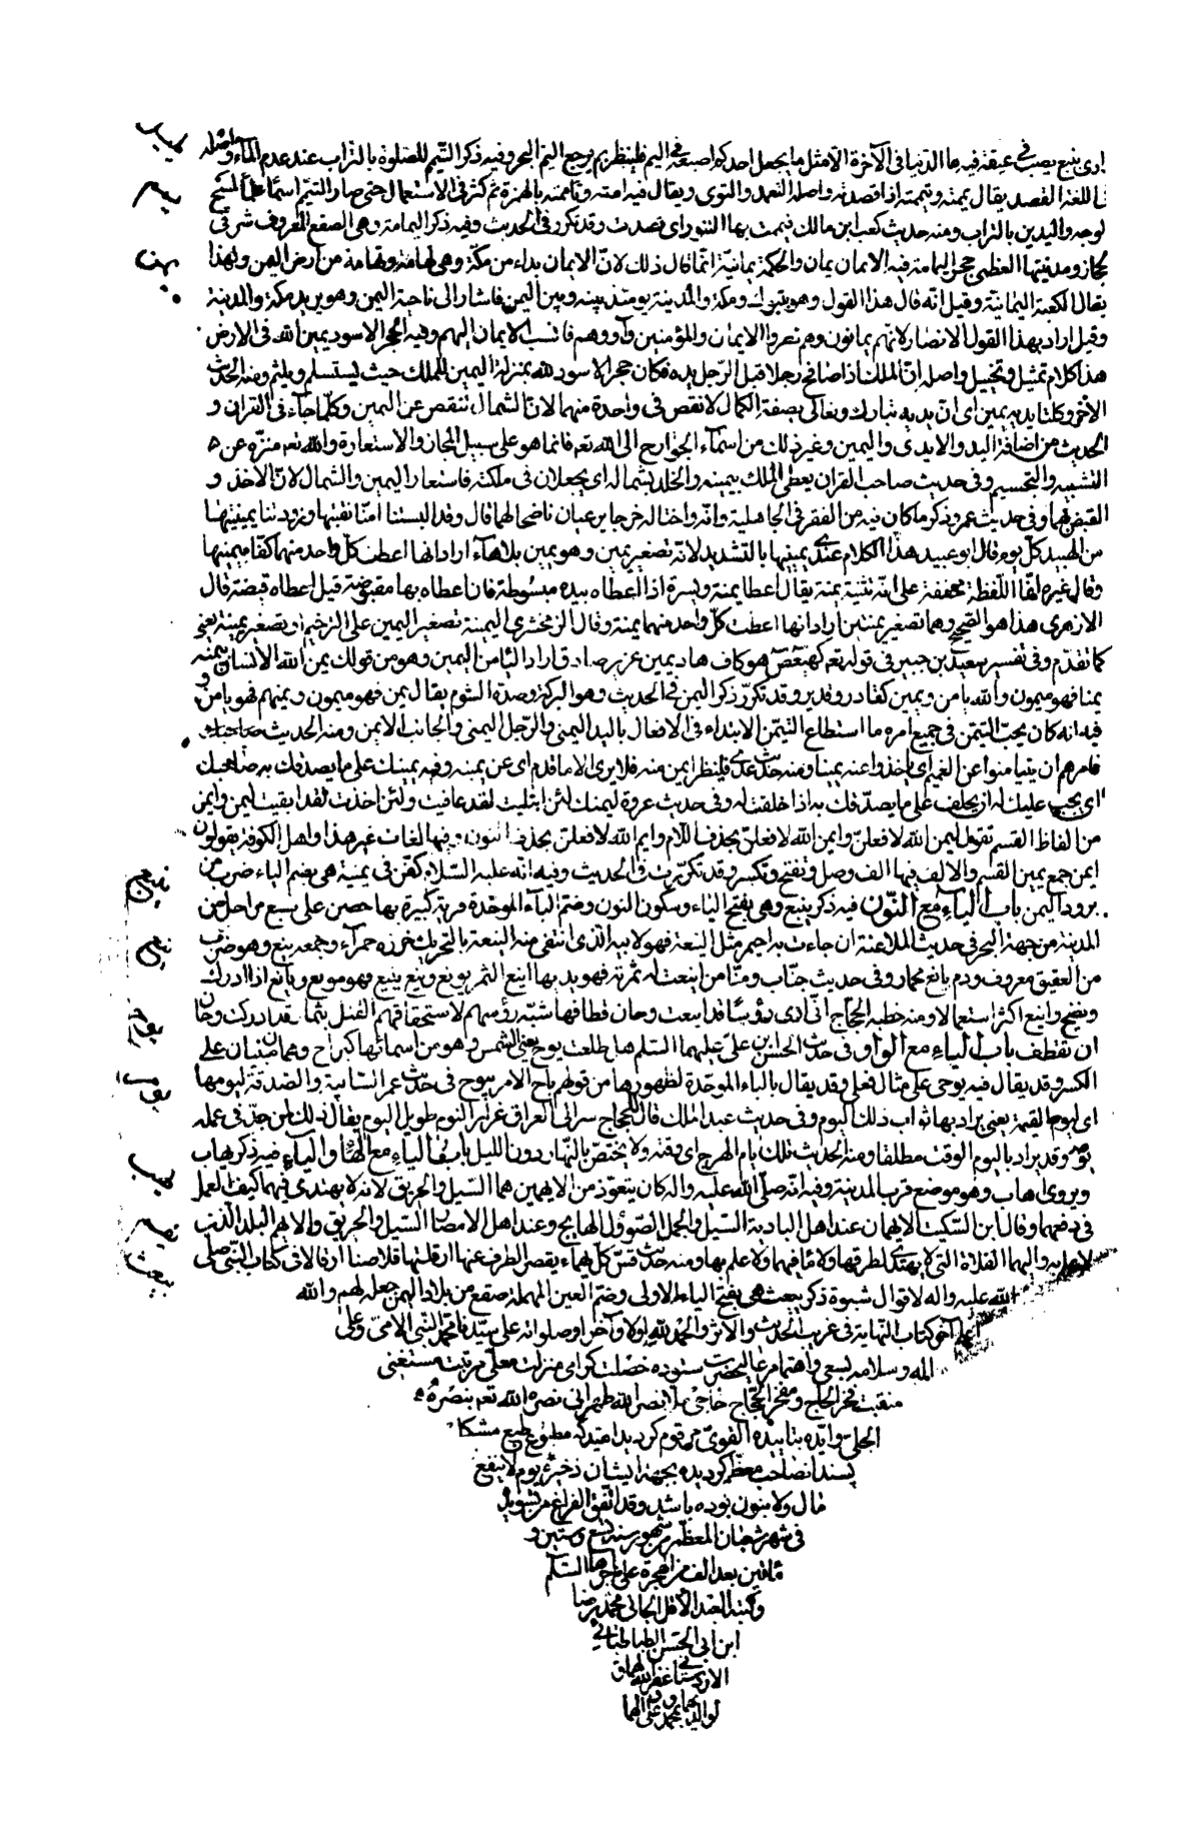 ادى ينبع يصب فى غيقة فيه ما الدنيا فى الآخرة الا مثل ما يجعل احدكم اصبعه فى اليم فلينظر بم يرجع اليم البحر وفيه ذكر التيمم للصلوة بالتراب عند عدم الماء واصله
فى اللغة القصد يقال يممته وتيممته اذا قصدته واصله التعمد والتوخى ويقال فيه اممته وتاممته بالهمزة ثم كثر فى الاستعمال حتى صار التيمم اسما علما لمسح
لوجه واليدين بالتراب ومنه حديث كعب ابن مالك فيممت بها التنور اى قصدت وقد تكرر فى الحديث وفيه ذكر اليمامة وهى الصقع المعروف شرقى
حجاز ومدينتها العظمى حجر اليمامة فيه الايمان يمان والحكمة يمانية انما قال ذلك لان الايمان بداء من مكة وهى تهامة وتهامة من ارض اليمن ولهذا
يقال الكعبة اليمانية وقيل انه قال هذا القول وهو بتبوك ومكة والمدينة يومئذ بينه وبين اليمن فاشار الى ناحية اليمن وهو يريد مكة والمدينة
وقيل اراد بهذا القول الانصار لانهم يمانون وهم نصروا الايمان والمؤمنين وآووهم فانسب الايمان اليهم وفيه الحجر الاسود يمين الله فى الارض
هذا كلام تمثيل وتخييل واصله ان الملك اذا صافح رجلا قبل الرجل يده فكان حجر الاسود لله بمنزلة اليمين للملك حيث يستسلم ويلثم ومنه الحديث
الآخر وكلتا يديه يمين اى ان يديه تبارك وتعالى بصفة الكمال لا نقص فى واحدة منهما لان الشمال تنقص عن اليمين وكلما جآء فى القران و
الحديث من اضافة اليد والايدى واليمين وغير ذلك من اسمآء الجوارح الى الله تعه فانما هو على سبيل المجاز والاستعارة والله تعه منزه عن
التشبيه والتجسيم وفى حديث صاحب القران يعطى الملك بيمينه والخلد بشماله اى يجعلان فى ملكته فاستعار اليمين والشمال لان الاخذ و
القبض بهما وفى حديث عمر وذكر ما كان فيه من الفقر فى الجاهلية وانه واختا له خرجا يرعيان ناضحا لهما قال وقد البستنا امنا نقبتها وزودتنا يمينتيها
من الهبيد كل يوم قال ابو عبيد هذا الكلام عندى يمينيها بالتشديد لانه تصغير يمين وهو يمين بلا هآء اراد انها اعطت كل واحد منهما كفا بيمينها
وقال غيره انما اللفظة مخففة على انه تثنية يمنة يقال اعطا يمنة ويسرة اذا اعطاه بيده مبسوطة فان اعطاه بها مقبوضة قيل اعطاه قبضة قال
الازهرى هذا هو الصحيح وهما تصغير يمنتين اراد انها اعطت كل واحد منهما يمنة وقال الزمخشرى اليمينة تصغير اليمين على الترخيم او تصغير يمنة يعنى
كما تقدم وفى تفسير سعيد بن جبير فى قوله تعه كهيعص هو كاف هاد يمين عزيز صادق اراد اليا من اليمين وهو من قولك يمن الله الانسان ييمنه
يمنا فهو ميمون والله يامن ويمين كقادر وقدير وقد تكرر ذكر اليمن فى الحديث وهو البركة وضده الشوم يقال يمن فهو ميمون ويمنهم فهو يامن و
فيه انه كان يحب التيمن فى جميع امره ما استطاع التيمن الابتداء فى الافعال باليد اليمنى والرجل اليمنى والجانب الايمن ومنه الحديث
فامرهم ان يتيامنوا عن الغميم اى ياخذوا عنه يمينا ومنه حديث عدى فلينظر ايمن منه فلا يرى الا ما قدم اى عن يمينه وفيه يمينك على ما يصدقك به صاحبك
اى يجب عليك له ان يحلف على ما يصدقك به اذا حلفت له وفى حديث عروة ليمنك لئن ابتليت لقد عافيت ولئن اخذت لقد ابقيت ليمن وايمن
من الفاظ القسم تقول ليمن الله لافعلن وايمن الله لافعلن بحذف اللام وايم الله لافعلن بحذف النون وفيها لغات غير هذا واهل الكوفة يقولون
ايمن جمع يمين القسم والالف فيها الف وصل وتفتح وتكسر وقد تكررت فى الحديث وفيه انه عليه السلام كفن فى يمنة هى بضم الياء ضرب من
برود اليمن باب الياء مع النون فيه ذكر ينبع وهى بفتح الياء وسكون النون وضم الباء الموحدة قرية كبيرة بها حصن على سبع مراحل من
المدينة من جهة البحر فى حديث الملاعنة ان جاءت به احيمر مثل الينعة فهو لابيه الذى انتفى منه الينعة بالتحريك خرزة حمراء وجمعه ينع وهو ضرب
من العقيق معروف ودم يانع محمار وفى حديث خباب ومنا من اينعت له ثمرته فهو يهدبها اينع الثمر يونع وينع يينع فهو مونع ويانع اذا ادرك
ونضج واينع اكثر استعمالا ومنه خطبة الحجاج انى ارى رؤسا قد اينعت وحان قطافها شبه رؤسهم لاستحقاقهم القتل بثمار قد ادركت وحان
ان تقطف باب الياء مع الواو فى حديث الحسن ابن على عليهما السلم هل طلعت يوح يعنى الشمس وهو من اسمائها كبراح وهما مبنيان على
الكسر وقد يقال فيه يوحى على مثال فعلى وقد يقال بالباء الموحدة لظهورها من قولهم باح الامر يبوح فى حديث عمر السائبة والصدقة ليومها
اى ليوم القيمة يعنى يراد بها ثواب ذلك اليوم وفى حديث عبد الملك قال للحجاج سر الى العراق غرار النوم طويل اليوم يقال ذلك لمن جد فى عمله
يوم وقد يراد باليوم الوقت مطلقا ومنه الحديث تلك ايام الهرج اى وقته ولا يختص بالنهار دون الليل باب الياء مع الهاء والياء فيه ذكر يهاب
ويروى اهاب وهو موضع قرب المدينة وفيه انه صلى الله عليه واله كان يتعوذ من الايهمين هما السيل والحريق لانه لا يهتدى فيهما كيف العمل
فى دفعهما وقال ابن السكيت الايهمان عند اهل البادية السيل والجمل الصؤول الهايج وعند اهل الامصار السيل والحريق والايهم البلد الذى
لا علم به واليهما الفلاة التى لا يهتدى لطرقها ولا مآء فيها ولا علم بها ومنه حديث قس كل يهماء يقصر الطرف عنها ارقلتها قلاصنا ارقالا فى كتاب النبى صلى
الله عليه واله لاقوال شبوة ذكر يبعث هى بفتح الياء الاولى وضم العين المهملة صقع من بلاد اليمن جعله لهم والله
اعلم آخر كتاب النهاية فى غريب الحديث والاثر والحمد لله اولا وآخرا وصلواته على سيدنا محمد النبى الامى وعلى
اله وسلامه بسعى واهتمام عاليحضرت ستوده خصلت كرامى منزلت معلى مرتبت مستغنى
منقبت فخر الحاج ومفخر الحجاج حاجى ملا نصر الله طهرانى نصره الله تعه بنصره
الجلى وايده بتاييده القوى مرقوم كرديد اميدكه مطبوع طبع مشكل
پسندان صاحب معظم كرديده بجهة ايشان ذخيره يوم لا ينفع
مال ولا بنون بوده باشد وقد اتفق الفراغ من تسويده
فى شهر شعبان المعظم من شهور سنة تسع وستين و
مأتين بعد الالف من الهجرة على هاجرها السلام
وكتبه العبد الاقل الجانى محمد رضا
ابن ابى الحسن الطباطبائى
الاردستانى غفر الله لهما و
لوالديهما بمحمد وعلى والهما
يمم
يمن
ينبع
ينع
يوح
يوم
يهب
يهم
يبعث